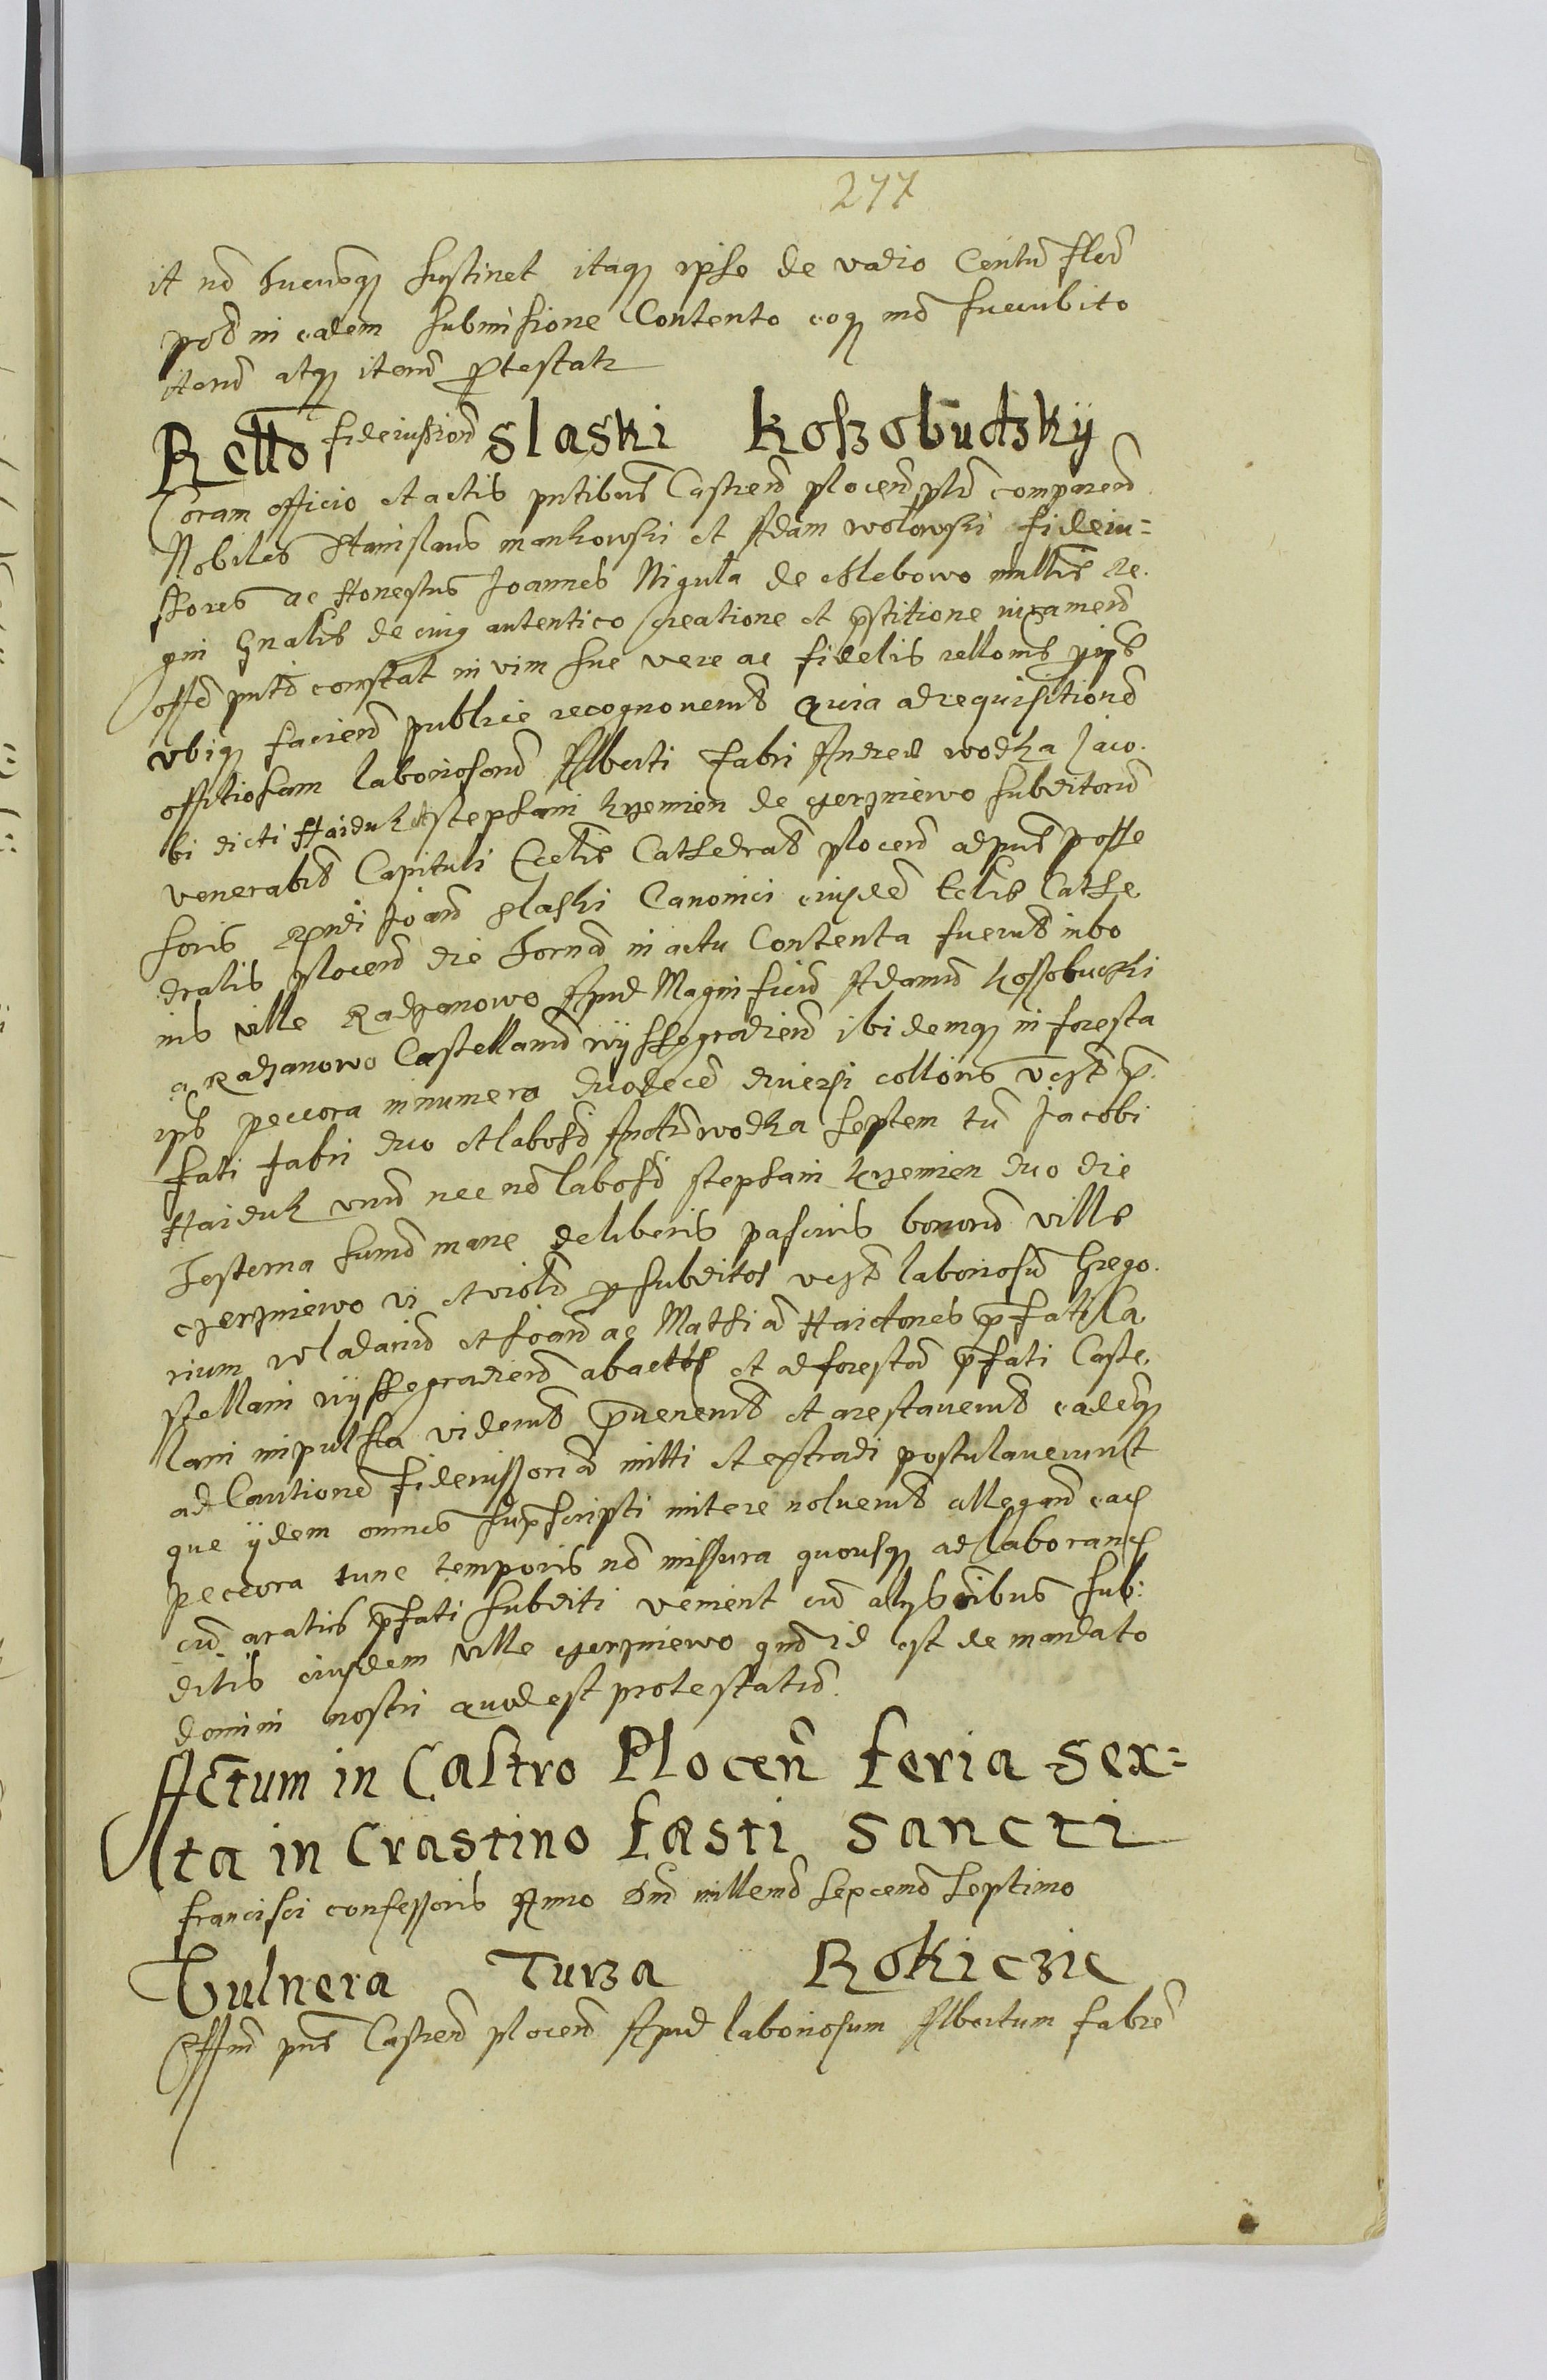 277
it nō succūbēq sustinet itaq ipse de vadio Centū flor
pōd in eadem submissione Contento eoq mō succubito
iterū atq iterū ptestatr
Rellō fideiussionē Slaski Koszobudzkÿ
Coram officio et actis pntibus Castreñ ploceñ psl comparen
Nobiles Stanislaus mankowski et Adam wolowski fideiu=
ssores ac Honestus Joannes Nigula de Chlebowo mllris Re
gni Gnalis de cuiq autentico creatione et pstitione iuramen
offō pntd constat in vim sue vere ac fidelis rellonis
vbiq facien publice recognoverūt quia ad requisitionē
offitiosam laboriosorū Alberti Fabri Andree wodka Jaco
bi dicti Haiduk et stephani krzemien de czerniewo subditorū
venerabil Capituli Ecclie Cathedral ploceñ ad pns posse
ssoris Rndi Joan Slaski Canonici eiusdē Eclie Cathe
dralis ploceñ die hernā in actu Contenta fuerūt in bo
nis ville Radzanowo Apud Magnificū Adamū kossobucki
a Radzanowo Castellanū wyssegradien ibidemq in foresta
ipś peccora in numero duodecē diversi colloris vcst p
fati fabri duo et labosī Andr wodka septem tū Jacobi
Haiduk vnū nec nō labosī stephani krzemien duo die
hesterna sumō mane de liberis pascuis bonorū ville
czerniewo vi et violē p subditos vcst laboriosū Grego
rium wladariū et Joan ac Mathiā Haidones pfati Ca
stellani wyssegradien abacta et ad forestā pfati Caste
lani inpulsa viderūt pvenerūt et arestaverūt eadēq
ad Cautionē fideiussoriā mitti et extradi postulaverunt
que ijdem omnes supscripti mitere noluerūt allegan eaq
peccora tunc temporis nō missura quousq ad laboranq
cū aratris pfati subditi venient cū alijs oibus sub:
ditis eiusdem ville czerniewo qnd id est de mandato
domini nostri quod est protestatū
Actum in Castro Ploceñ feria sex=
ta in Crastino Fæsti Sancti
Francisci confessoris Anno Dni millemō sexcemō septimo
Vulnera Turza Rokiczie
Offm pns Castren ploceñ Apud laboriosum Albertum fabrē